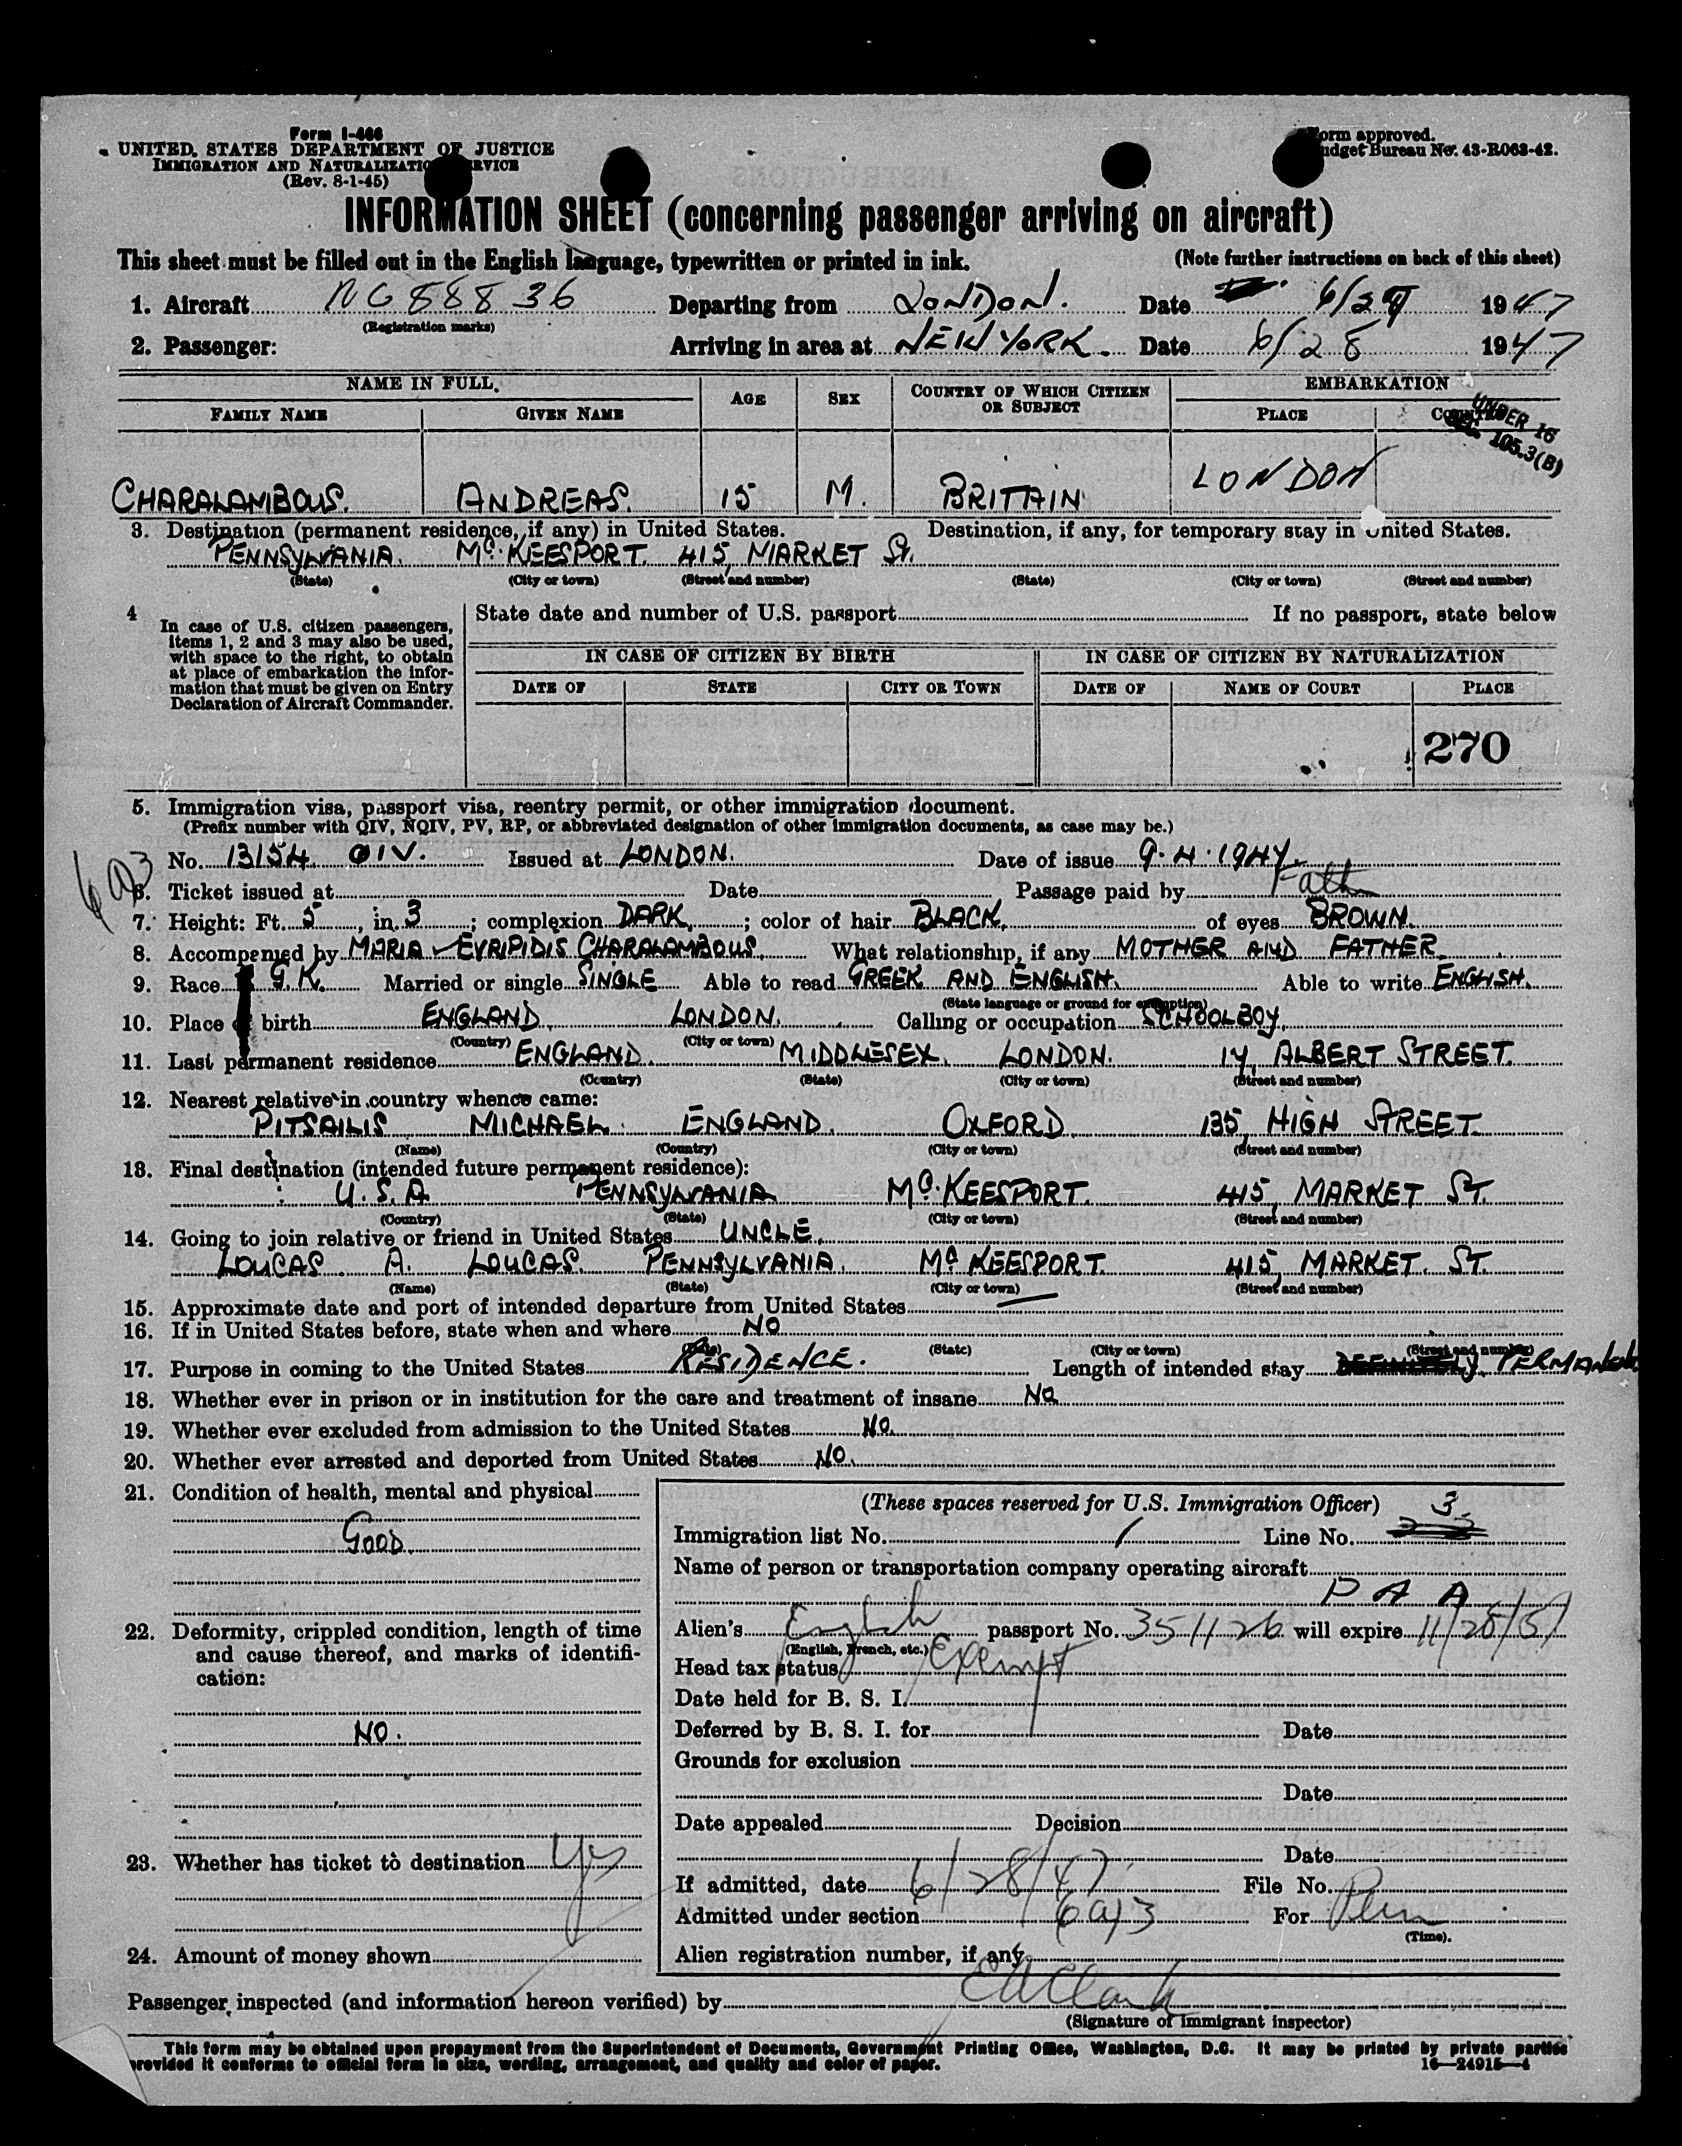 Form I-466
UNITED STATES DEPARTMENT OF JUSTICE
IMMIGRATION AND NATURALIZATION SERVICE
(Rev. 8-1-45)
Form approved.
Budget Bureau No. 43-R063-42.
INFORMATION SHEET (concerning passenger arriving on aircraft)
This sheet must be filled out in the English language, typewritten or printed in ink. (Note further instructions on back of this sheet)
1. Aircraft NC 88836 Departing from LONDON. Date 6/27 1947
(Registration marks)
2. Passenger: Arriving in area at NEW YORK. Date 6/28 1947
NAME IN FULL. AGE SEX COUNTRY OF WHICH CITIZEN OR SUBJECT EMBARKATION
FAMILY NAME GIVEN NAME PLACE COUNTRY
UNDER 16
SEC. 105.3(B)
CHARALAMBOUS. ANDREAS. 15 M. BRITAIN LONDON
3. Destination (permanent residence, if any) in United States. Destination, if any, for temporary stay in United States.
PENNSYLVANIA. Mc. KEESPORT. 415, MARKET St.
(State) (City or town) (Street and number) (State) (City or town) (Street and number)
4 In case of U.S. citizen passengers, items 1, 2 and 3 may also be used, with space to the right, to obtain at place of embarkation the information that must be given on Entry Declaration of Aircraft Commander.
State date and number of U.S. passport If no passport, state below
IN CASE OF CITIZEN BY BIRTH IN CASE OF CITIZEN BY NATURALIZATION
DATE OF STATE CITY OR TOWN DATE OF NAME OF COURT PLACE
270
5. Immigration visa, passport visa, reentry permit, or other immigration document.
(Prefix number with QIV, NQIV, PV, RP, or abbreviated designation of other immigration documents, as case may be.)
6a)3
No. 13154 QIV. Issued at LONDON. Date of issue 9.4.1947.
6. Ticket issued at Date Passage paid by Father
7. Height: Ft. 5, in. 3; complexion DARK.; color of hair BLACK. of eyes BROWN.
8. Accompanied by MARIA EVRIPIDIS CHARALAMBOUS. What relationship, if any MOTHER AND FATHER.
9. Race G.K. Married or single SINGLE Able to read GREEK AND ENGLISH. Able to write ENGLISH.
(State language or ground for exemption)
10. Place of birth ENGLAND. LONDON. Calling or occupation SCHOOLBOY.
(Country) (City or town)
11. Last permanent residence ENGLAND. MIDDLESEX. LONDON. 14, ALBERT STREET.
(Country) (State) (City or town) (Street and number)
12. Nearest relative in country whence came:
PITSAILIS MICHAEL. ENGLAND. OXFORD. 135, HIGH STREET.
(Name) (Country) (City or town) (Street and number)
13. Final destination (intended future permanent residence):
U.S.A PENNSYLVANIA Mc. KEESPORT. 415, MARKET ST.
(Country) (State) (City or town) (Street and number)
14. Going to join relative or friend in United States UNCLE.
LOUCAS A. LOUCAS. PENNSYLVANIA. Mc KEESPORT. 415, MARKET. ST.
(Name) (State) (City or town) (Street and number)
15. Approximate date and port of intended departure from United States —
16. If in United States before, state when and where NO
(Date) (State) (City or town) (Street and number)
17. Purpose in coming to the United States RESIDENCE. Length of intended stay PERMANENT.
18. Whether ever in prison or in institution for the care and treatment of insane NO.
19. Whether ever excluded from admission to the United States NO.
20. Whether ever arrested and deported from United States NO.
21. Condition of health, mental and physical
GOOD.
22. Deformity, crippled condition, length of time and cause thereof, and marks of identification:
NO.
23. Whether has ticket to destination yes
24. Amount of money shown
(These spaces reserved for U.S. Immigration Officer)
Immigration list No. 1 Line No. 3
Name of person or transportation company operating aircraft
P A A
Alien's English passport No. 351126 will expire 11/28/51
(English, French, etc.)
Head tax status Exempt
Date held for B. S. I.
Deferred by B. S. I. for Date
Grounds for exclusion
Date
Date appealed Decision
Date
If admitted, date 6/28/47 File No.
Admitted under section 6a)3 For Perm
(Time).
Alien registration number, if any
Passenger inspected (and information hereon verified) by EA Clark
(Signature of immigrant inspector)
This form may be obtained upon prepayment from the Superintendent of Documents, Government Printing Office, Washington, D.C. It may be printed by private parties
provided it conforms to official form in size, wording, arrangement, and quality and color of paper. 16—24915—4